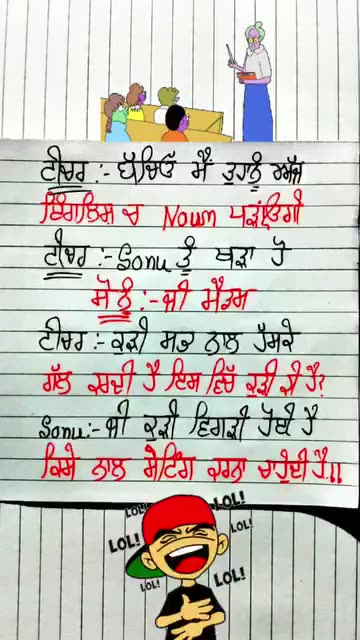 ਟੀਚਰ :- ਬੱਚਿਓ ਮੈਂ ਤੁਹਾਨੂੰ ਅੱਜ
ਇੰਗਲਿਸ਼ ਚ Noun ਪੜ੍ਹਾਂਉਗੀ
ਟੀਚਰ :- Sonu ਤੂੰ ਖੜਾ ਹੋ
ਸੋਨੂੰ :- ਜੀ ਮੈਡਮ
ਟੀਚਰ :- ਕੁੜੀ ਸਭ ਨਾਲ ਹੱਸਕੇ
ਗੱਲ ਕਰਦੀ ਹੈ ਇਸ ਵਿੱਚ ਕੁੜੀ ਕੀ ਹੈ?
Sonu:- ਜੀ ਕੁੜੀ ਵਿਗੜੀ ਹੋਈ ਹੈ
ਕਿਸੇ ਨਾਲ ਸੇਟਿੰਗ ਕਰਨਾ ਚਾਹੁੰਦੀ ਹੈ.!!
LOL! LOL!
LOL! LOL!
LOL! LOL!